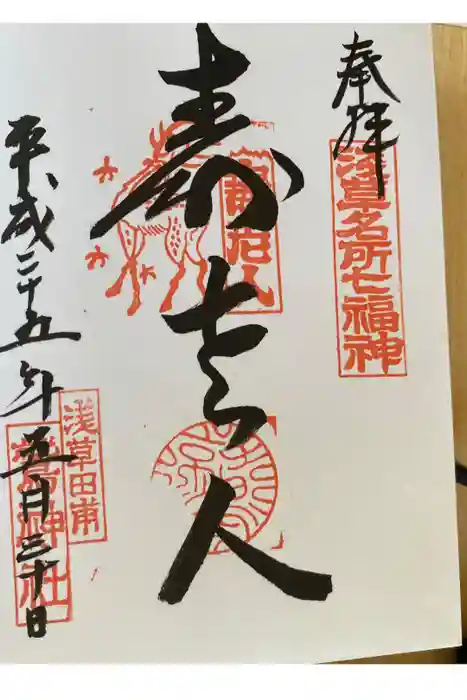 奉拝
浅草名所七福神
寿老人
平成二十五年五月三十日
浅草田甫
鷲神社